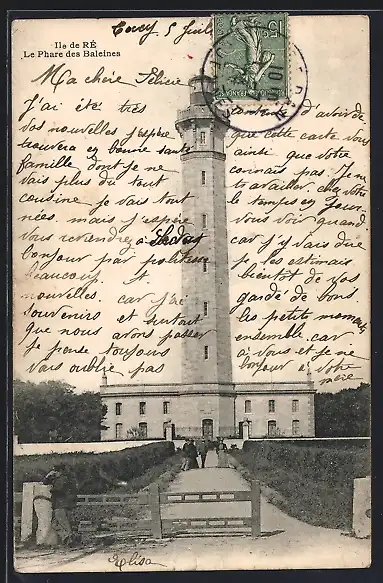 Ile de RÉ
Le Phare des Baleines
5
Ma chère Félicie
J'ai été très contente d'avoir de
vos nouvelles j'espère que cette carte vous
trouvera en bonne santé ainsi que votre
famille dont je ne connais pas Je ne
vais plus du tout travailler chez votre
cousine je vais tout le temps en jour
nées mais j'espère vous voir quand
vous reviendrez à car j'y vais dire
bonjour par politesse je les estimais
beaucoup et bientôt de vos
nouvelles car j'ai garde de bons
souvenirs et surtout les petits moments
que nous avons passer ensemble car
je pense toujours à vous et je ne
vais oublie pas bonjour à votre
mère
Elisa